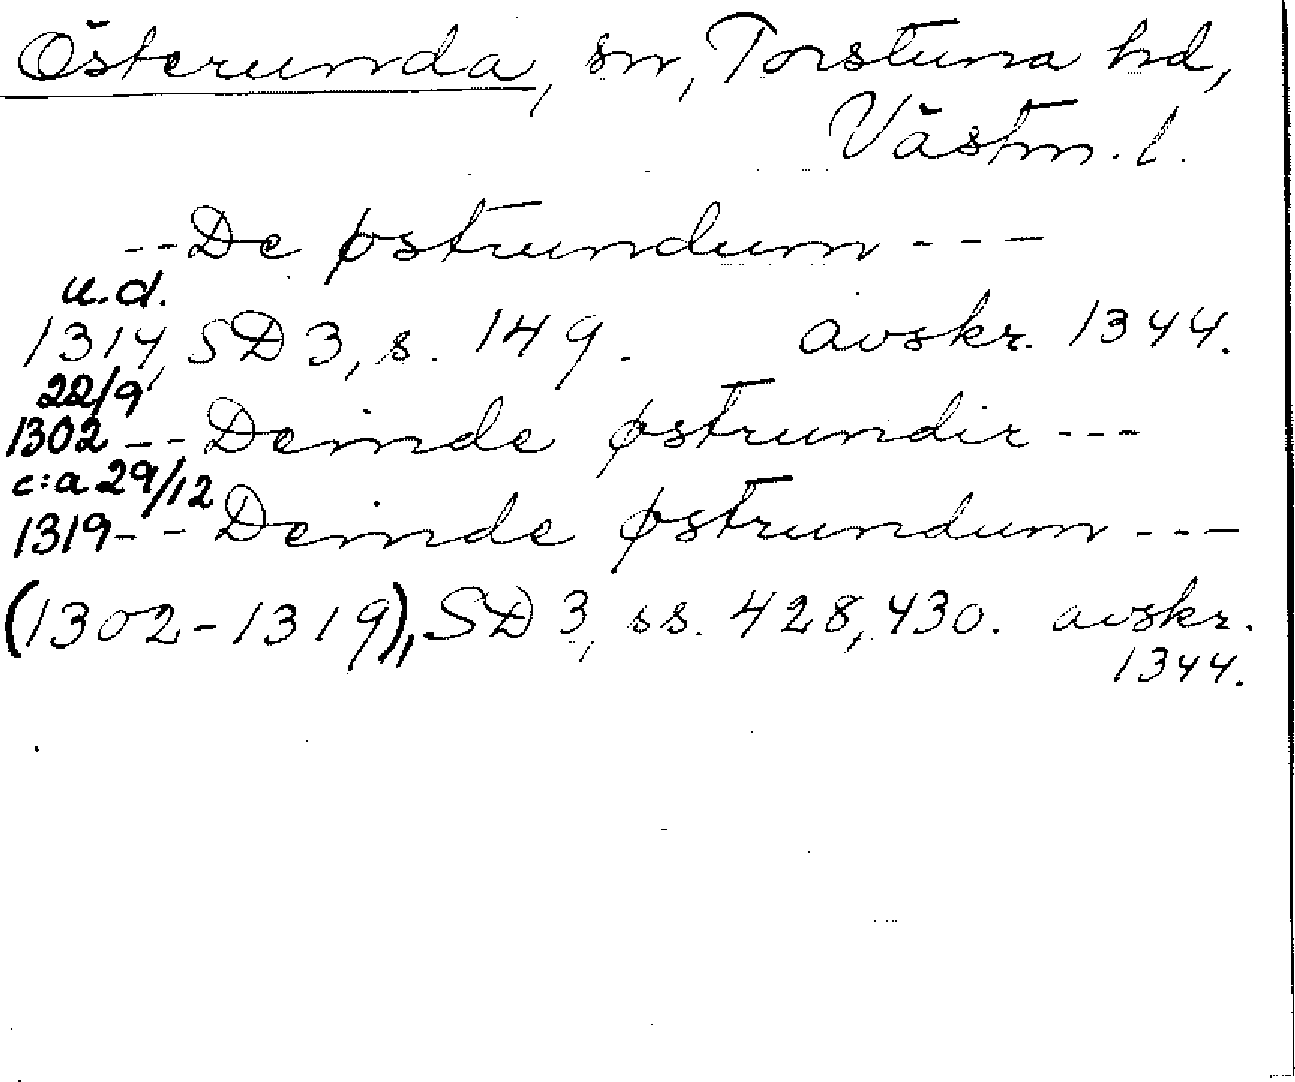 Österunda, sn, Torstuna hd,
Västm. l.
-- De østrundum ---
u.d.
1314, SD 3, s. 149. avskr. 1344.
22/9
1302 -- Deinde østrundir ---
c:a 29/12
1319 -- Deinde østrundum ---
(1302-1319), SD 3, ss. 428, 430. avskr.
1344.